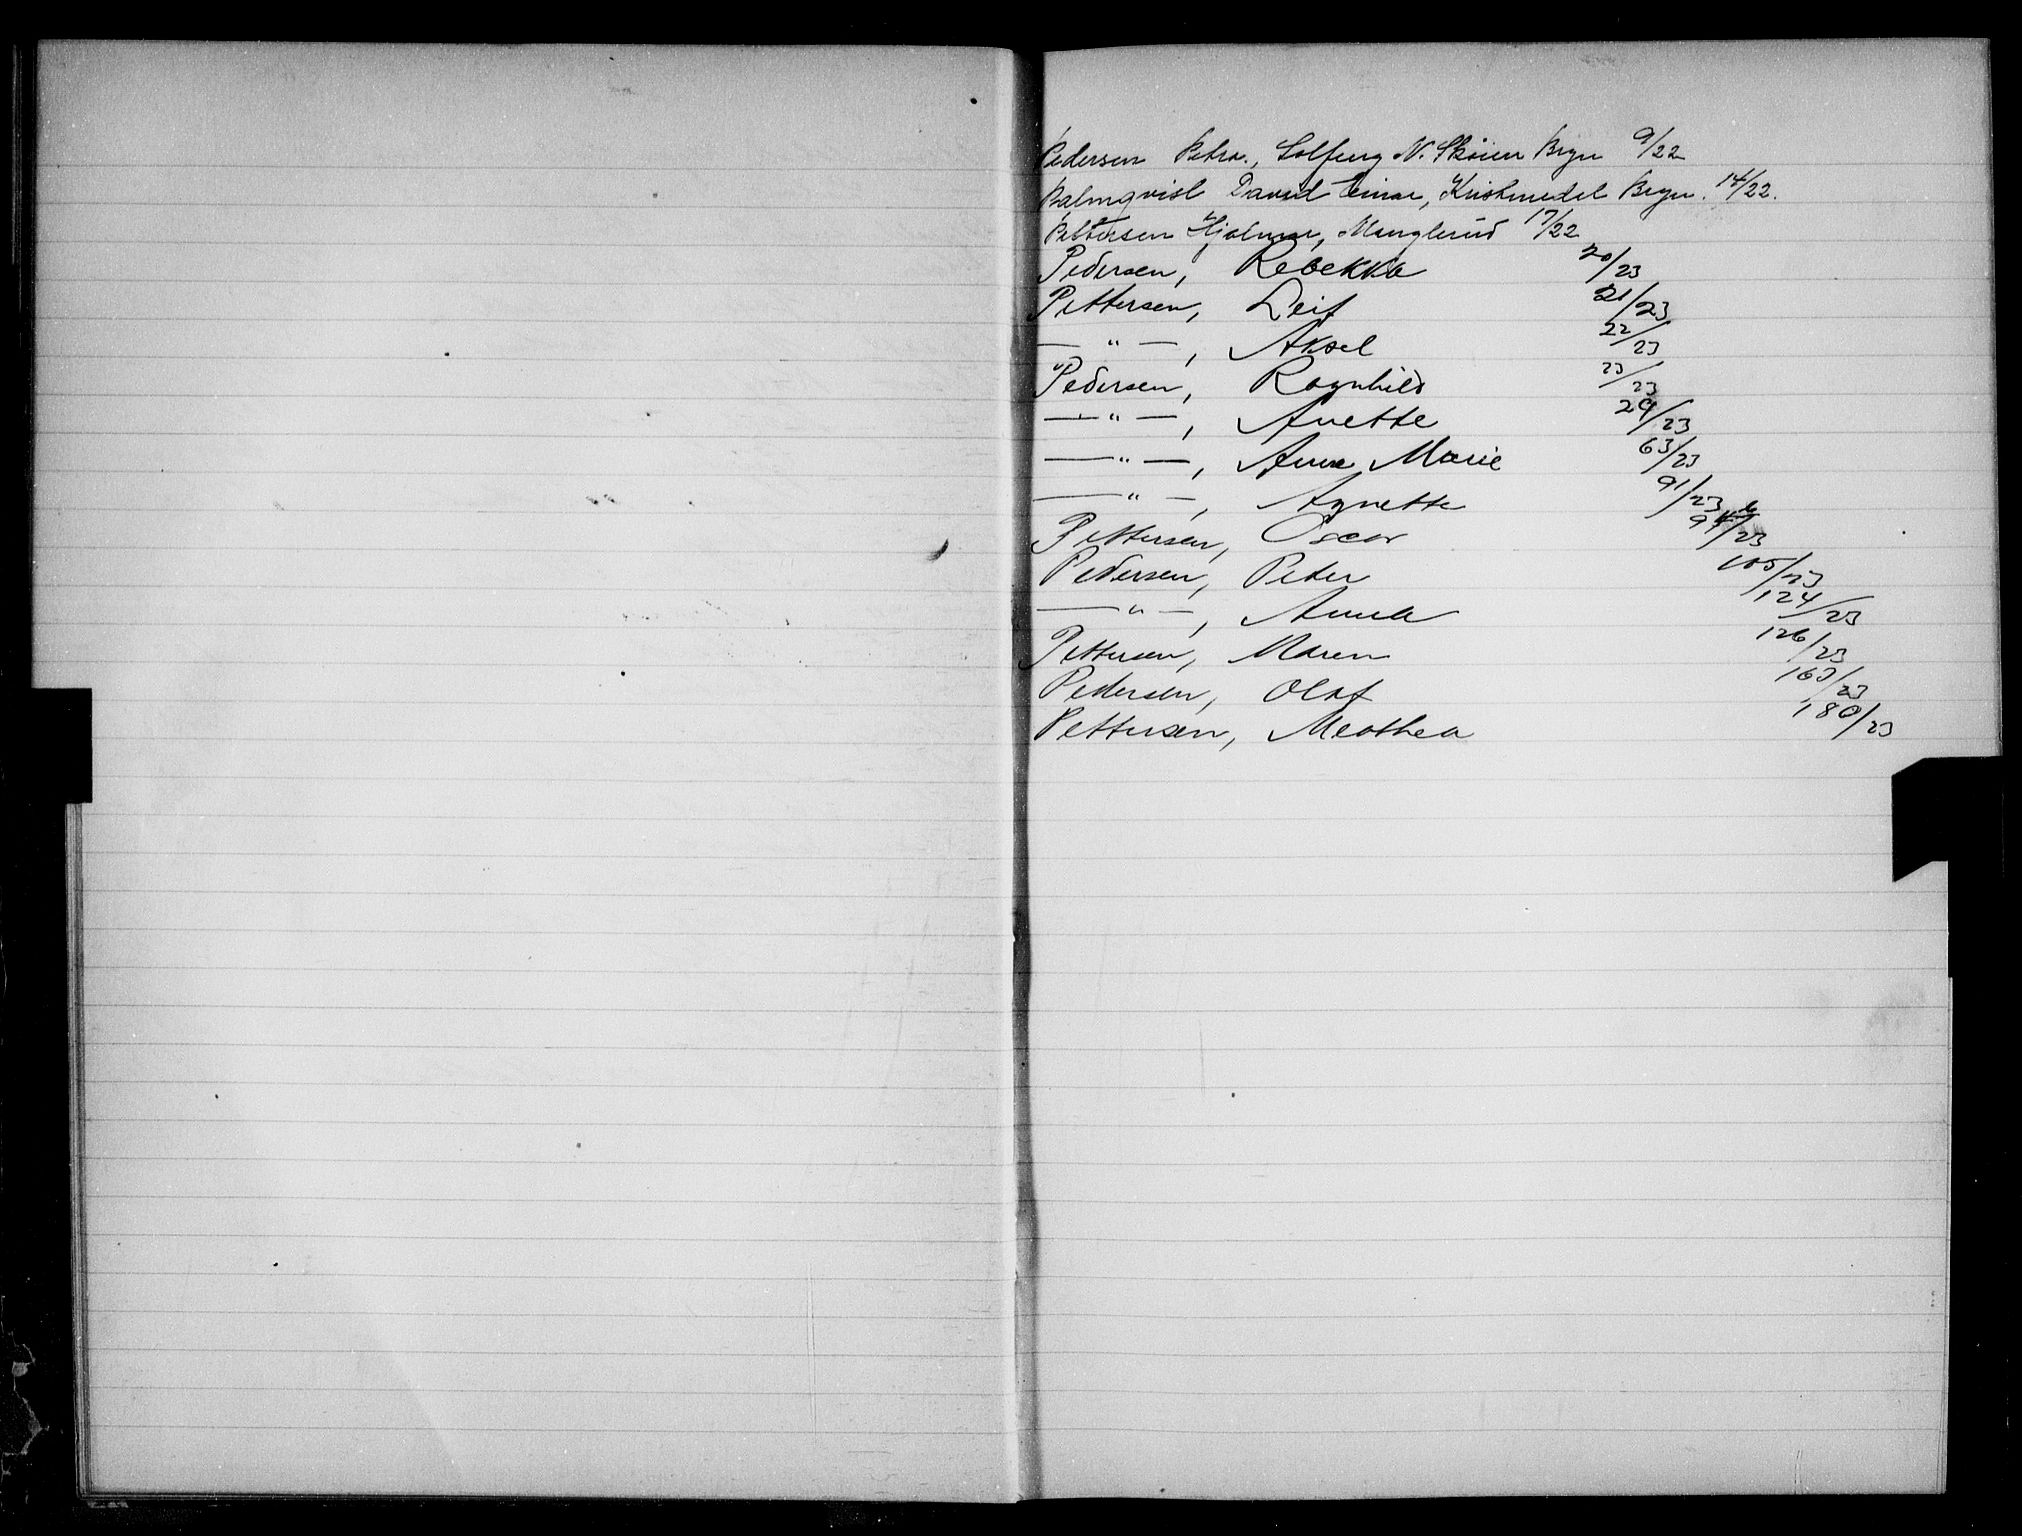 Pedersen Petra., Solfeng N. Skøien Bryn 9/22
Palmqvist David Einar, Kristinedal Bryn. 14/22.
Pettersen Hjalmar, Manglerud 17/22
Pedersen, Rebekka 20/23
Pettersen, Leif 21/23
— " —, Aksel 22/23
Pedersen, Ragnhild 23/23
— " —, Anette 29/23
— " —, Anna Marie 63/23
— " —, Agnette 91/23
Pettersen, Oscar 94b/23
Pedersen, Peter 105/23
— " —, Anna 124/23
Pettersen, Maren 126/23
Pedersen, Olaf 163/23
Pettersen, Meathea 180/23